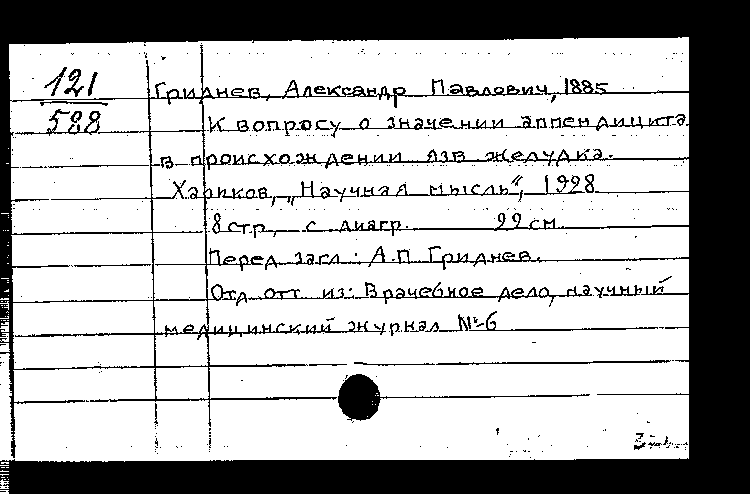 121
588
Гриднев, Александр Павлович, 1885
К вопросу о значении аппендицита
в происхождении язв желудка.
Харьков, „Научная мысль“, 1928
8 стр., с диагр. 22 см.
Перед загл.: А.П. Гриднев.
Отд. отт. из: Врачебное дело, научный
медицинский журнал №6